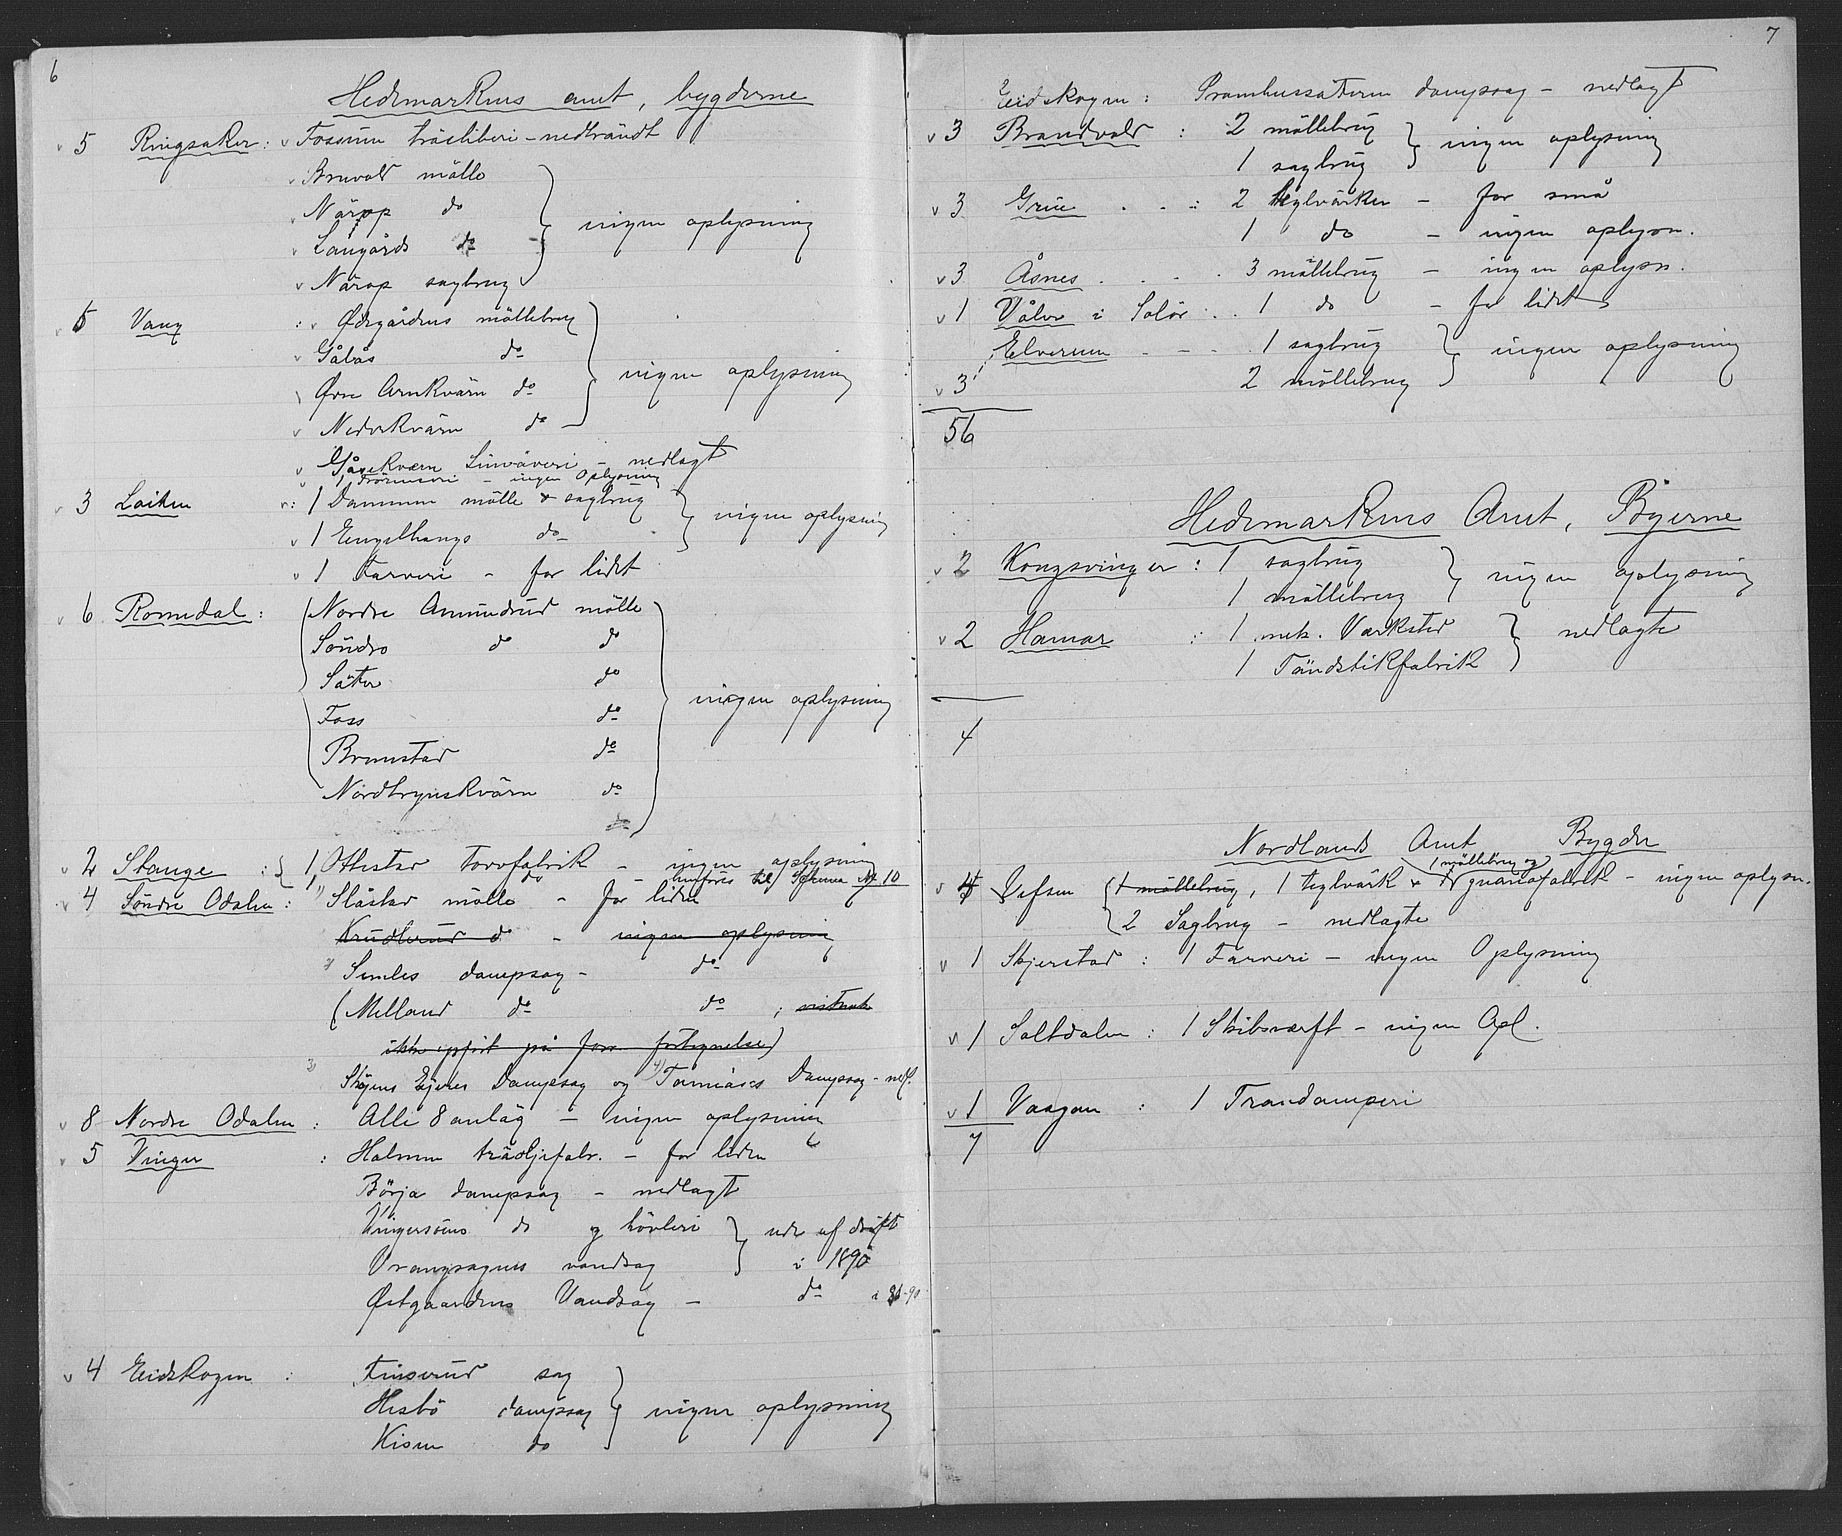 6
Hedemarkens amt, bygderne
v 5 Ringsaker: v Fossum träsliberi - nedbrändt
v Bruvold mölle
v Närop do
v do
v Närop sagbrug
} ingen oplysning
v 5 Vang : v Ödegårdens möllebrug
v Gålås do
Övre Arnkvärn do
v Nedrekvärn do
} ingen oplysning
v Gåsekværn Linväveri - nedlagt
v 1 - ingen Oplysning
v 3 Löiten v: 1 Dammen mölle & sagbrug
v 1 Engelhaugs do
} ingen oplysning
v 1 Farveri - for lidet
v 6 Romedal: Nordre Aamundrud mölle
Söndre do do
Säter do
Foss do
Brenstad do
Nordhagenskvärn do
} ingen oplysning
v 2 Stange : { 1 Ottestad torvfabrik - ingen oplysning
1 do - henføres til Schema No 10
v 4 Söndre Odalen: 1) Slåstad mölle - for liden
do - ingen oplysning
2) Simles dampsag - do
(Melland do do ; vistnok
ikke opført på forr. fortegnelse)
3) Skøjens Ejeres Dampsag og 4) Dampsag - nedl.
v 8 Nordre Odalen : Alle 8 anläg - ingen oplysning
v 5 Vinger : Holmen trädljefabr. - for liden
Börja dampsag - nedlagt
Vingersöens do og hövleri
Vrangsagens vandsag
} ude af drift i 1890
Östgaardens Vandsag - do i -90
v 4 Eidskogen : Finsrud sag
Hesbö dampsag
Kisen do
} ingen oplysning
7
Eidskogen: dampsag - nedlagt
v 3 Brandvold : 2 möllebrug
1 sagbrug
} ingen oplysning
v 3 Grue . . . : 2 teglvärker - for små
1 do - ingen oplysn.
v 3 Åsnes . . . 3 möllebrug - ingen oplysn.
v 1 Våler i Solör . . 1 do - for lidet
Elverum - - . 1 sagbrug
v 3 2 möllebrug
} ingen oplysning
56
Hedemarkens Amt, Byerne
v 2 Kongsvinger : 1 sagbrug
1 möllebrug
} ingen oplysning
v 2 Hamar : 1 mek. Värksted
1 Tändstikfabrik
} nedlagte
4
Nordlands Amt Bygder
1 möllebrug og
v 5 Vefsen { 1 möllebrug, 1 teglvärk & 1 guanofabrik - ingen oplysn.
2 Sagbrug - nedlagte
v 1 Skjerstad : 1 Farveri - ingen Oplysning
v 1 Saltdalen : 1 Skibsværft - ingen Opl.
v 1 Vaagan : 1 Trandamperi
7